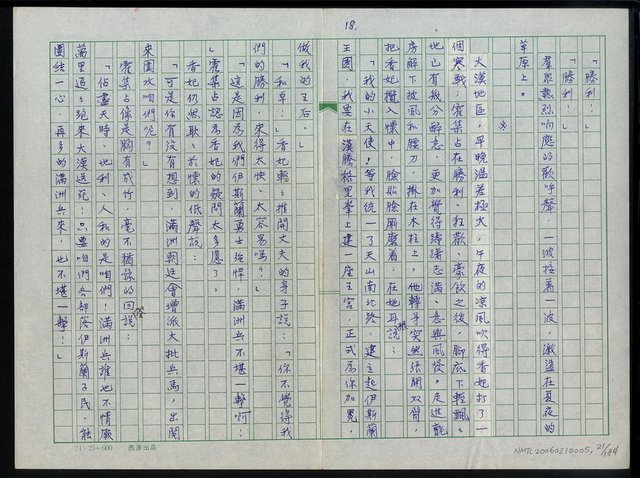 18.
「勝利!」
「勝利!」
羣眾熱烈响應的歡呼聲,一波接着一波,激盪在夏夜的
草原上。
※
大漠地區,早晚溫差極大,午夜的涼風吹得香妃打了一
個寒戰;霍集占在勝利、狂歡、豪飲之後,腳底下輕飄,
他已有幾分醉意,更加覺得躊躇志滿、意興風發。走進氈
房解下披風和腰刀,掛在木柱上,他轉身突然張開双臂,
把香妃攬入懷中,臉貼臉廝磨着,在她耳根說:
「我的小天使!等我統一了天山南北路,建立起伊斯蘭
王國,我要在漢騰格里峯上建一座王宮,正式為你加冕,
做我的王后。」
「和卓!」香妃輕輕推開丈夫的身子說:「你不覺得我
們的勝利,來得太快、太容易嗎?」
「這是因為我們伊斯蘭勇士強悍,滿洲兵不堪一擊啊!
」霍集占認為香妃的疑問太多慮了。
香妃仍然耿耿於懷的低聲說:
「可是你有沒有想到,滿洲朝廷會增派大批兵馬,出関
來圍攻咱們呢?」
霍集占像是胸有成竹,毫不猶諒的回答說:
「佔盡天時、地利、人和的是咱們!滿洲兵誰也不情願
萬里迢迢跑來大漠送死!只要咱們各部落伊斯蘭子民,能
團結一心,再多的滿洲兵來,也不堪一擊!」
21×25=600
NMTL20060210005, 21/184